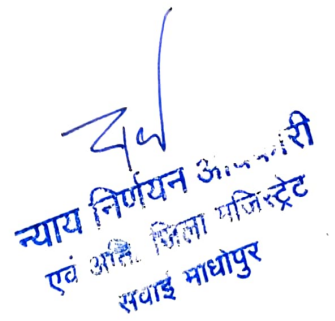 न्याय निर्णयन
एवं अति. जिला मजिस्ट्रेट
सवाई माधोपुर